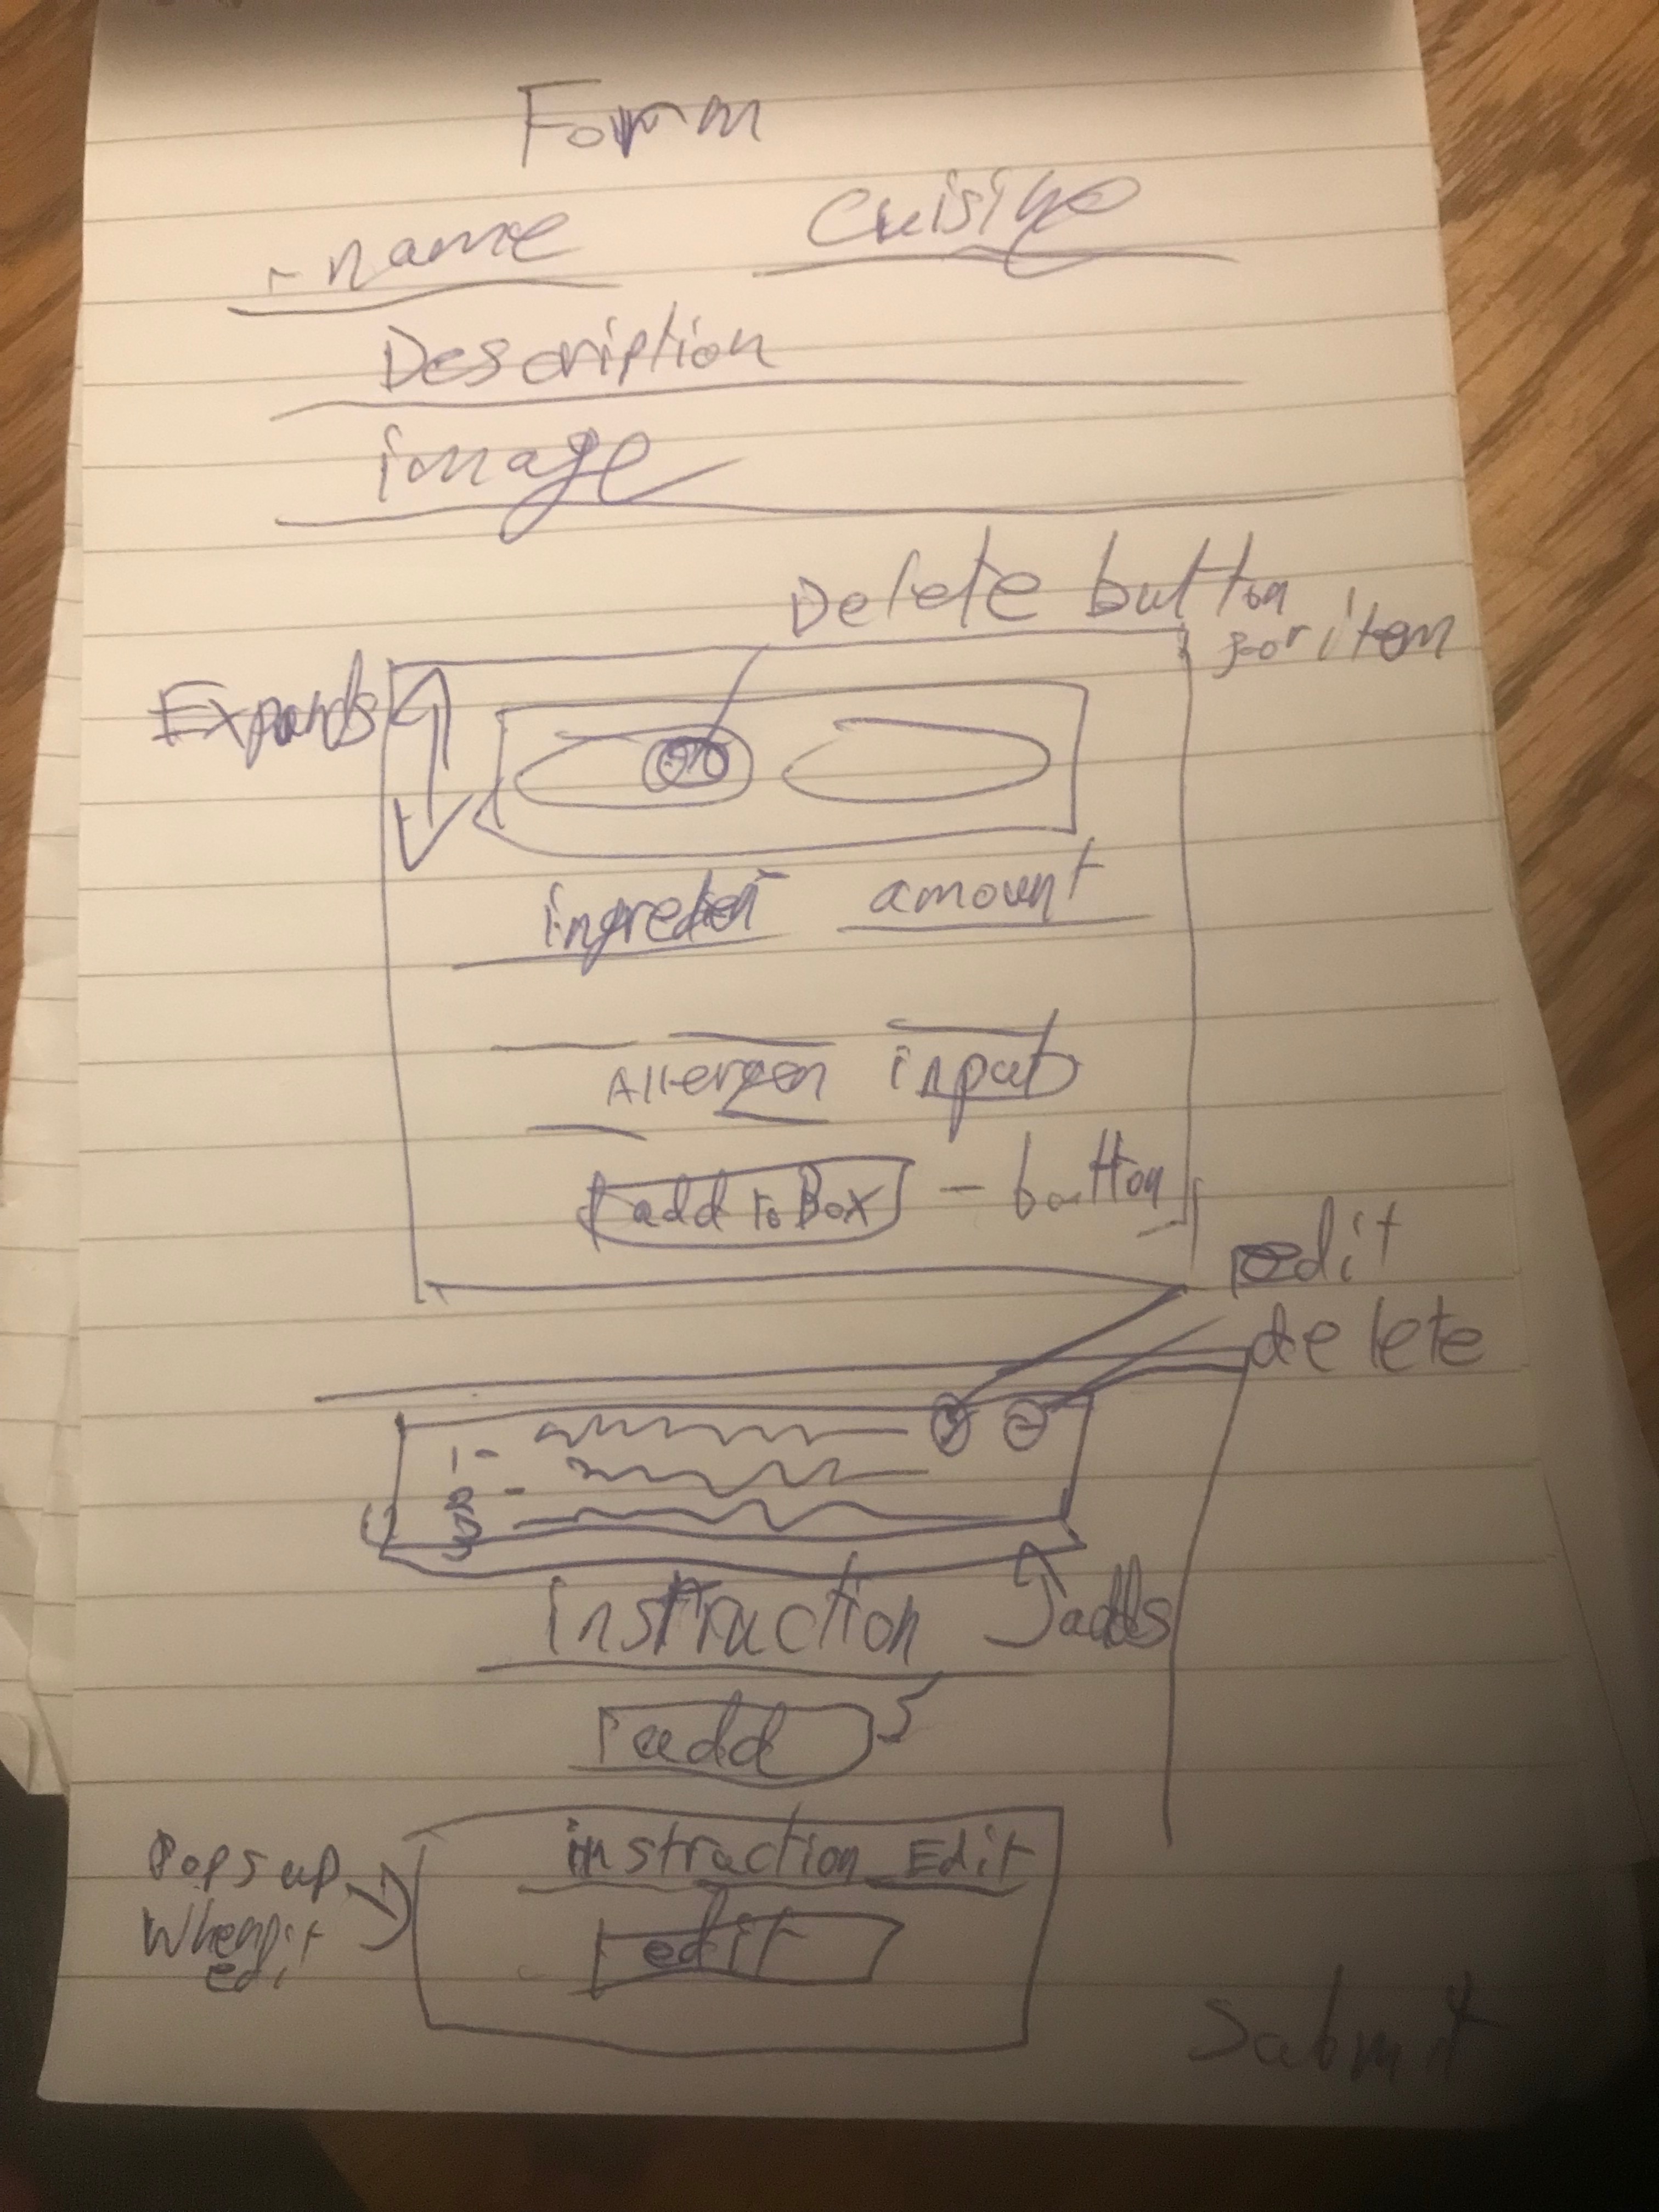 Form
- name Cuisine
Description
image
Delete button
for item
Expands
ingredient amount
Allergen input
add to Box - button
edit
delete
1-
2 -
3
instruction adds
add
Pops up
when
edit
instruction Edit
edit
Submit